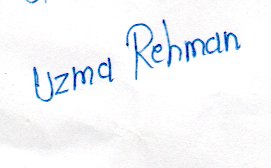 Uzma Rehman